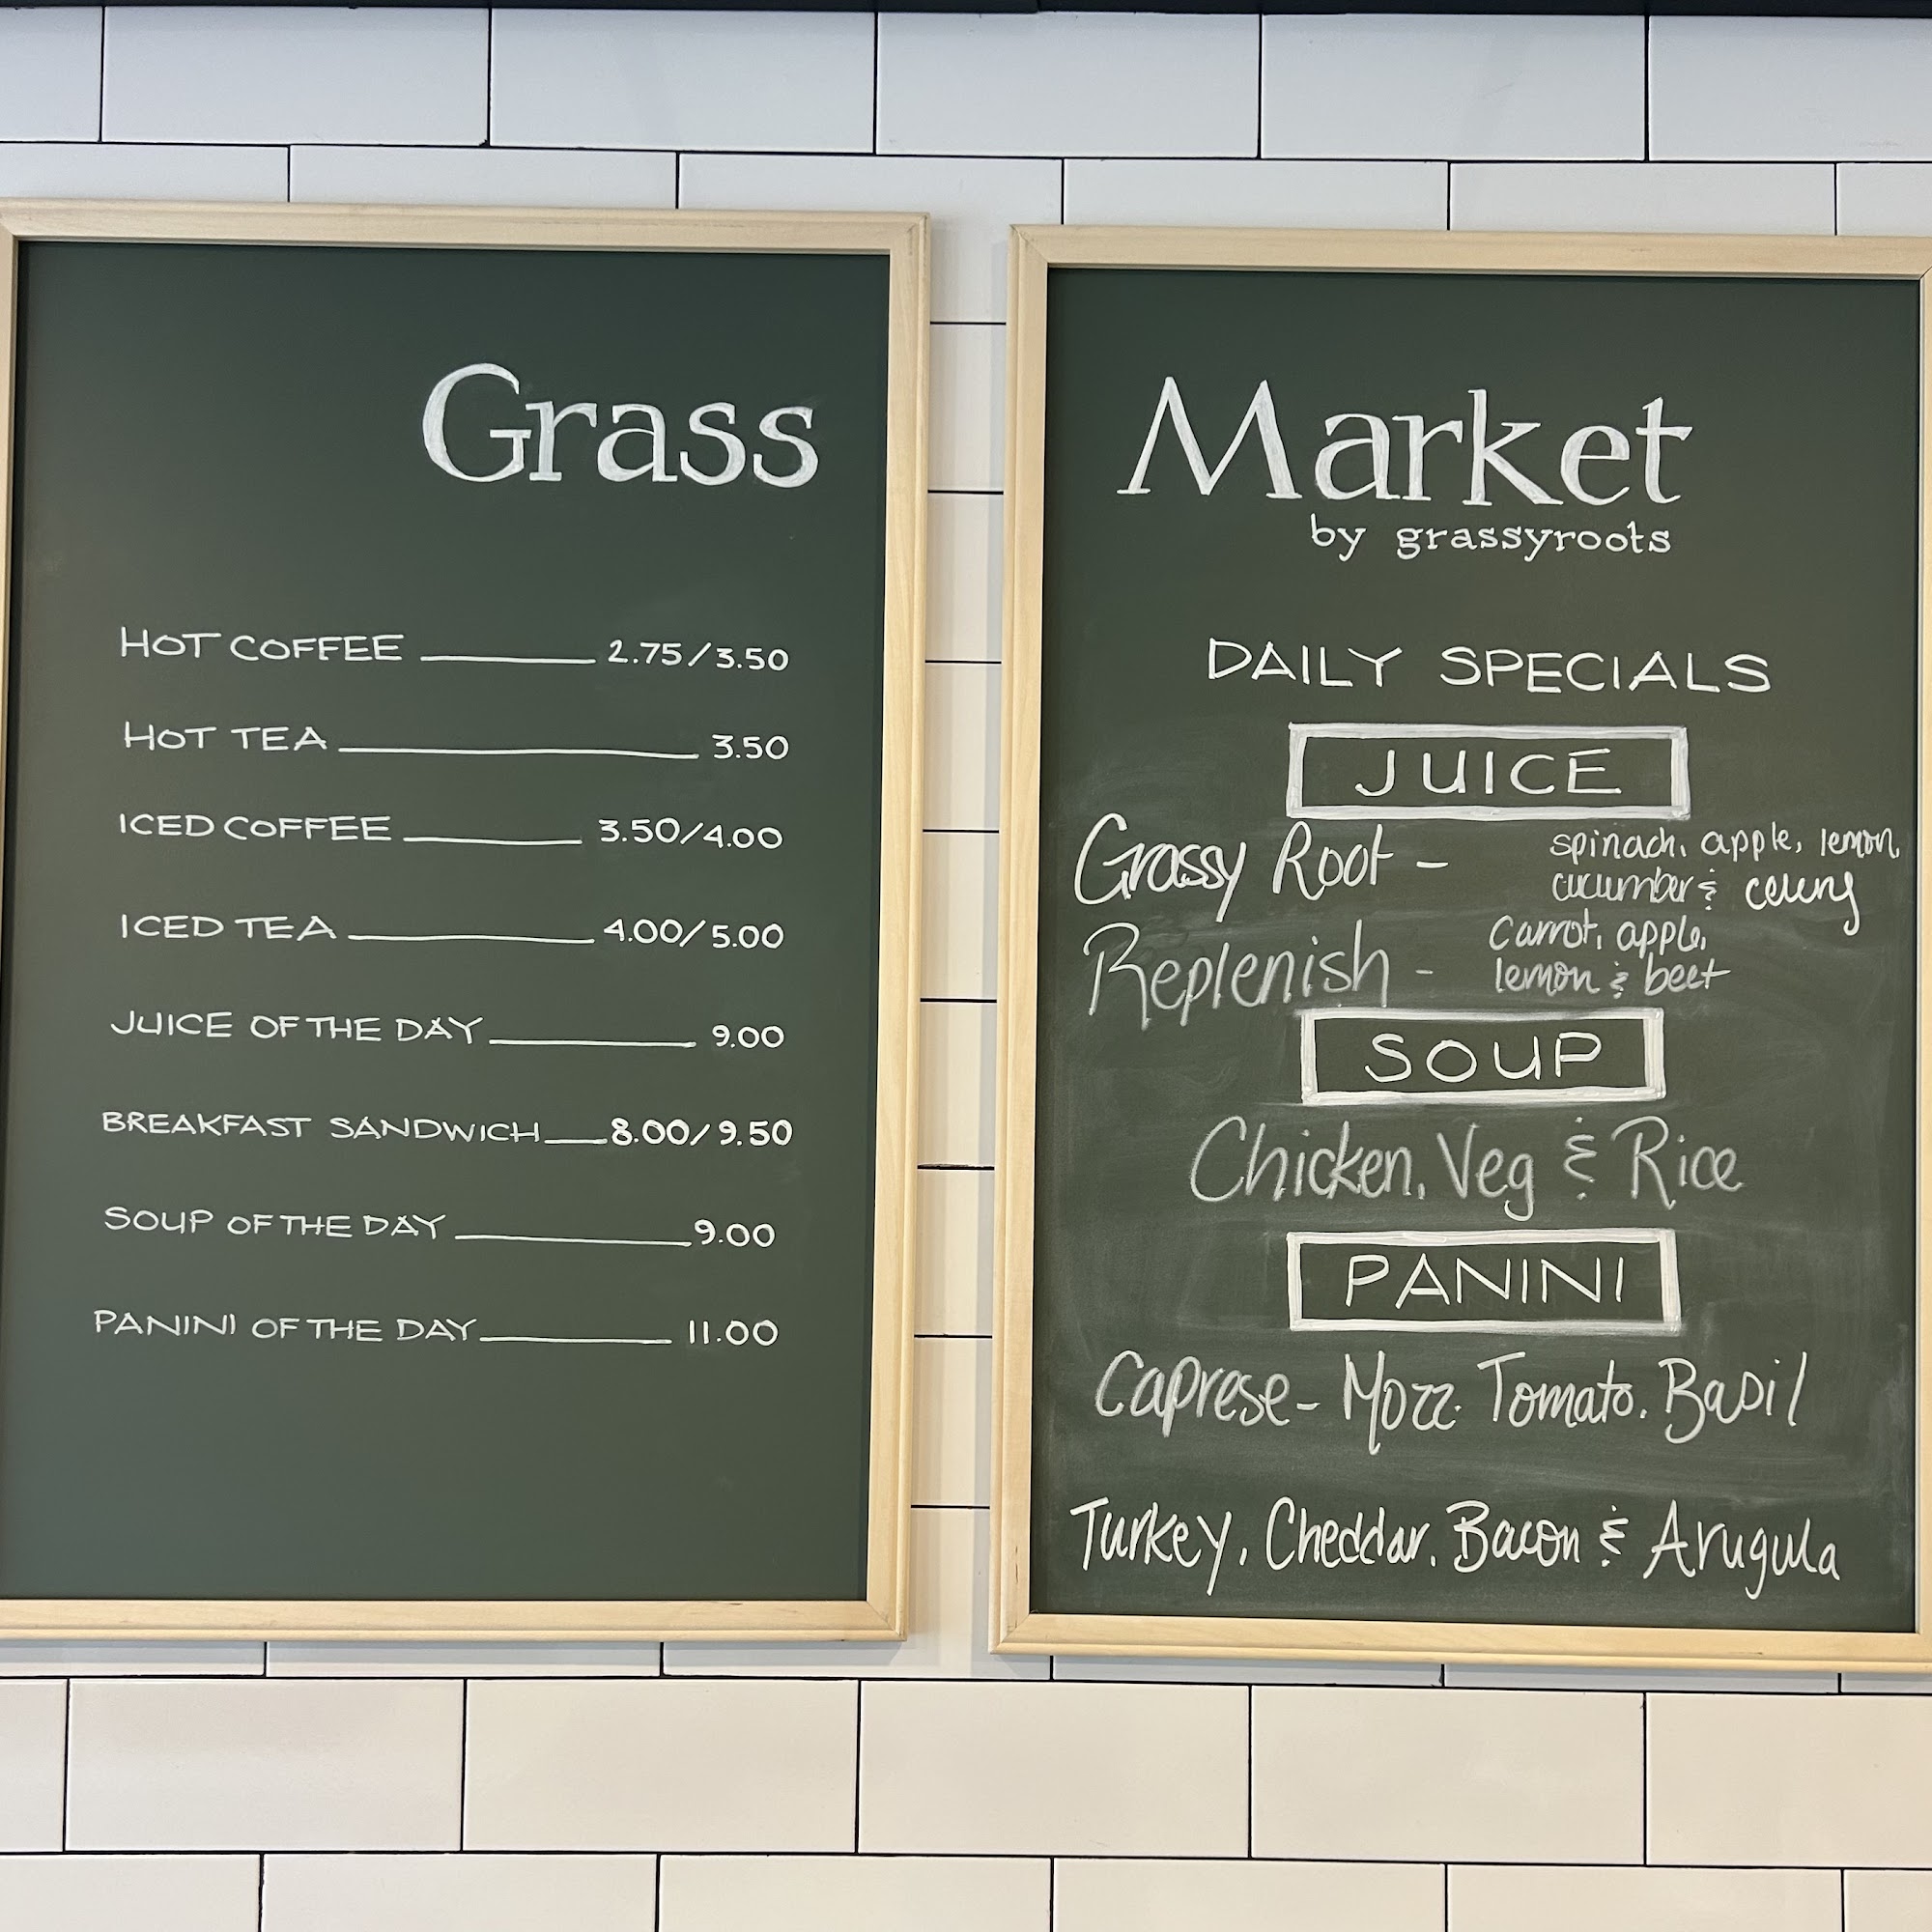 Grass
HOT COFFEE 2.75/3.50
HOT TEA 3.50
ICED COFFEE 3.50/4.00
ICED TEA 4.00/5.00
JUICE OF THE DAY 9.00
BREAKFAST SANDWICH 8.00/9.50
SOUP OF THE DAY 9.00
PANINI OF THE DAY 11.00
Market
by grassyroots
DAILY SPECIALS
JUICE
Grassy Root - spinach, apple, lemon,
cucumber & celery
Replenish - carrot, apple,
lemon & beet
SOUP
Chicken, Veg & Rice
PANINI
Caprese - Mozz. Tomato. Basil
Turkey, Cheddar, Bacon & Arugula